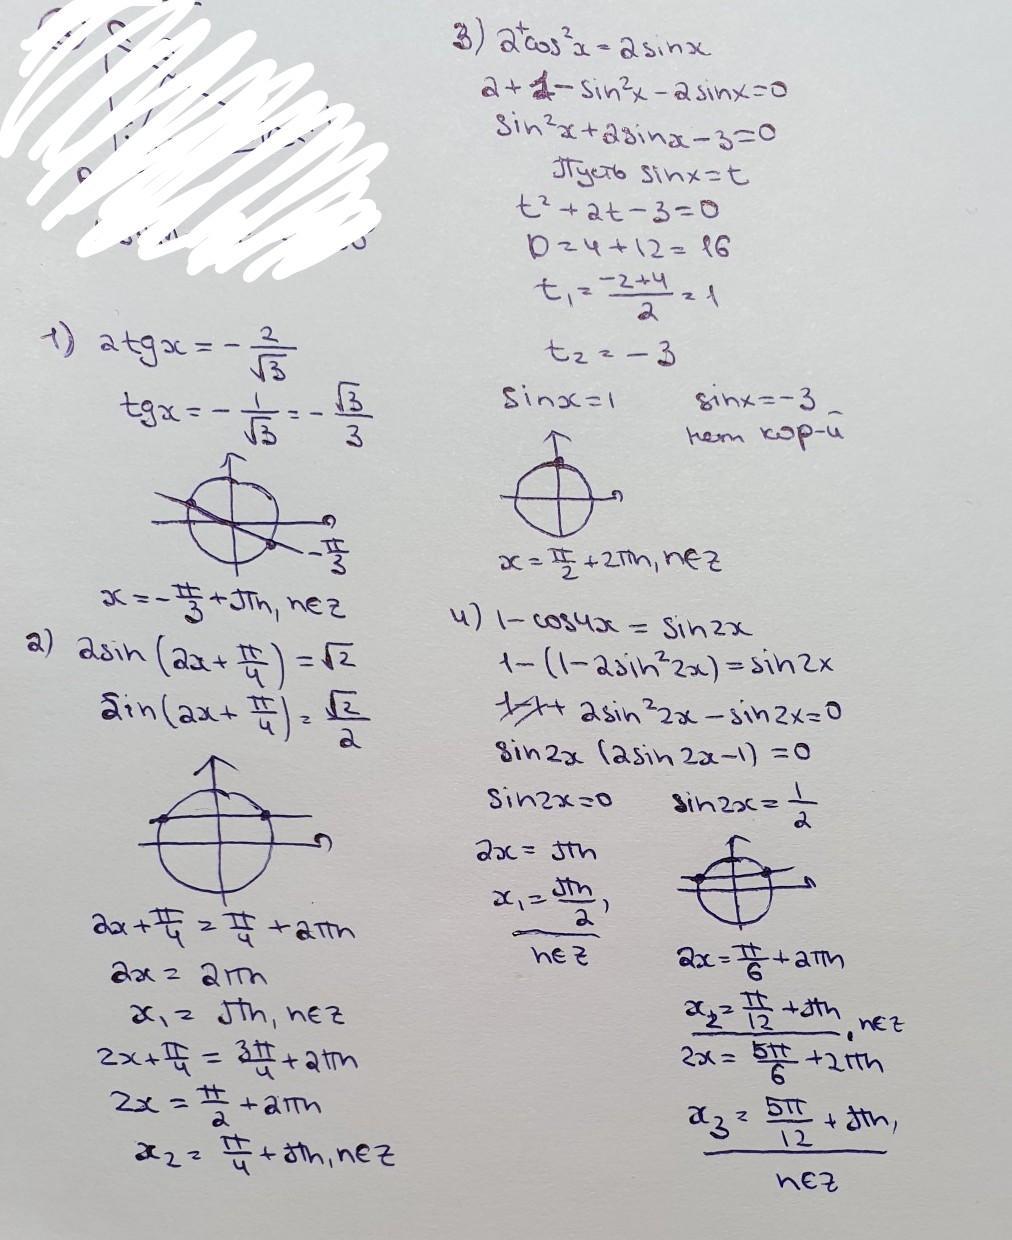 1) 2tgx = - 2/√3
tgx = - 1/√3 = - √3/3
- π/3
x = - π/3 + πn, n∈Z
2) 2sin(2x + π/4) = √2
sin(2x + π/4) = √2/2
2x + π/4 = π/4 + 2πn
2x = 2πn
x₁ = πn, n∈Z
2x + π/4 = 3π/4 + 2πn
2x = π/2 + 2πn
x₂ = π/4 + πn, n∈Z
3) 2 + cos²x = 2sinx
2 + 1 - sin²x - 2sinx = 0
sin²x + 2sinx - 3 = 0
Пусть sinx = t
t² + 2t - 3 = 0
D = 4 + 12 = 16
t₁ = (-2+4)/2 = 1
t₂ = -3
sinx = 1 sinx = -3
нет кор-й
x = π/2 + 2πn, n∈Z
4) 1 - cos4x = sin2x
1 - (1 - 2sin²2x) = sin2x
1 - 1 + 2sin²2x - sin2x = 0
sin2x (2sin2x - 1) = 0
sin2x = 0 sin2x = 1/2
2x = πn
x₁ = πn/2,
n∈Z
2x = π/6 + 2πn
x₂ = π/12 + πn, n∈Z
2x = 5π/6 + 2πn
x₃ = 5π/12 + πn,
n∈Z